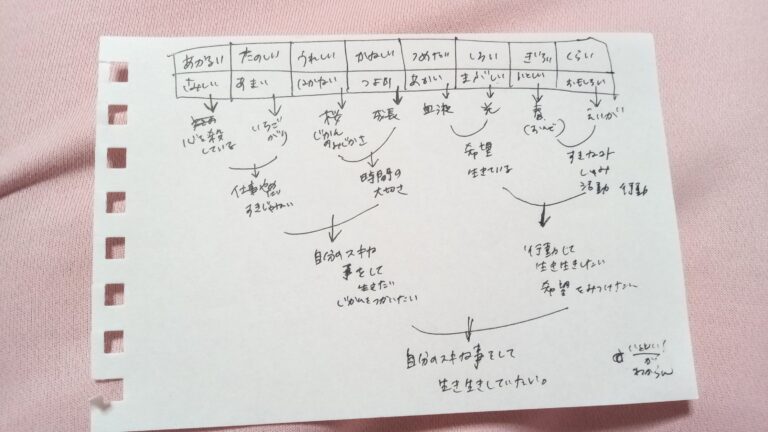 あかるい たのしい うれしい かなしい つめたい しろい きいろい くらい
さみしい あまい はかない つよい あかい まぶしい いとしい おもしろい
心を殺
している
いちご
がり
桜
じかん
のみじかさ
成長
血液
光
えいが
仕事
すきじゃない
時間の
大切さ
希望
生きている
すきなコト
しゅみ
活動 行動
自分のスキな
事をして
じかんをつかいたい
行動して
生き生きしたい
希望をみつけたい
自分のスキな事をして
生き生きしていたい。
いとしい!
が
わからん